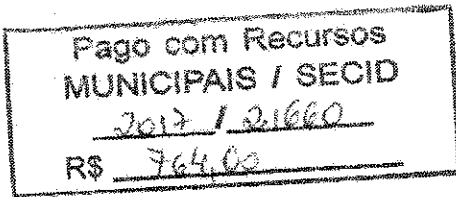 Pago com Recursos
MUNICIPAIS / SECID
2017 / 21660
R$ 764,00